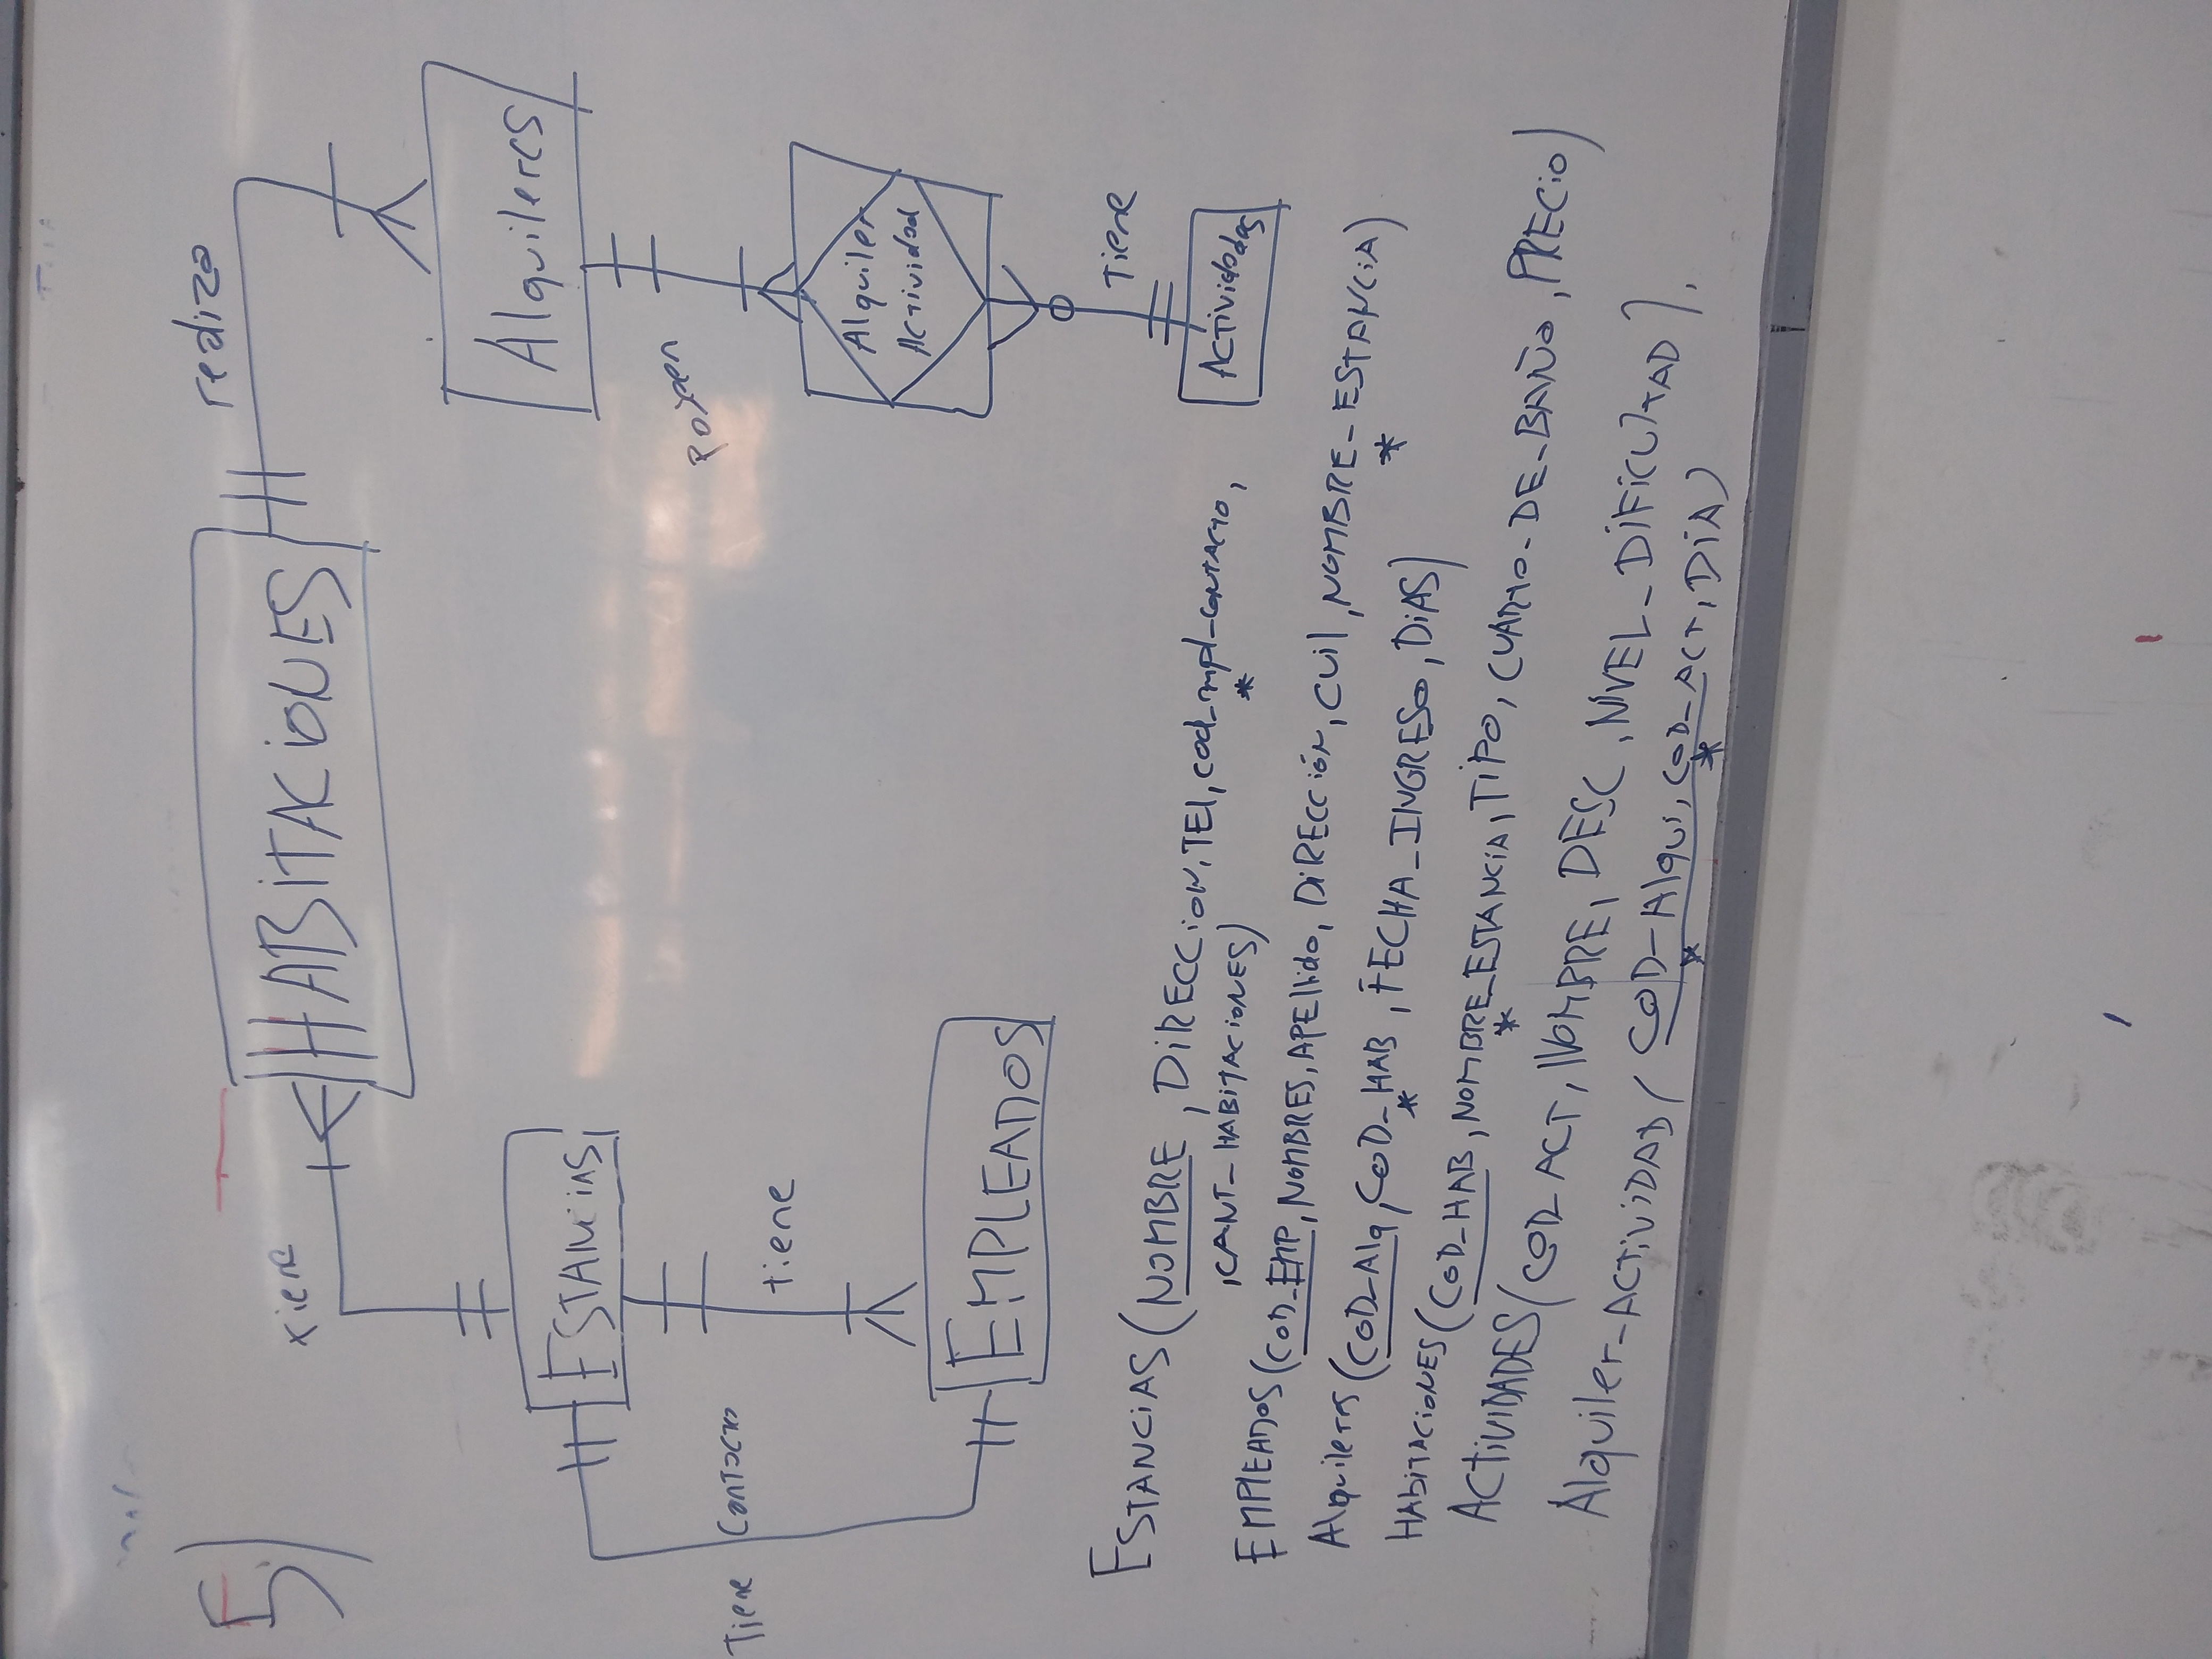 5)
tiene
HABITACIONES
realiza
Alquileres
ESTANCIAS
Tiene Contacto
tiene
EMPLEADOS
Alquiler
Actividad
Tiene
Actividades
ESTANCIAS (NOMBRE, DIRECCION, TEL, cod_mpl_contacto,
,CANT_HABITACIONES) *
EMPLEADOS (COD_EMP, NOMBRES, APEllido, DIRECCIÓN, CUIL, NOMBRE_ESTANCIA)
*
Alquileres (COD_Alq, COD_HAB, FECHA_INGRESO, DIAS)
*
HABITACIONES (COD_HAB, NOMBRE_ESTANCIA, TIPO, CUARTO_DE_BAÑO, PRECIO)
*
ACTIVIDADES (COD_ACT, NOMBRE, DESC, NIVEL_DIFICULTAD).
Alquiler_ACTIVIDAD (COD_Alqui, COD_ACT, DIA)
* *